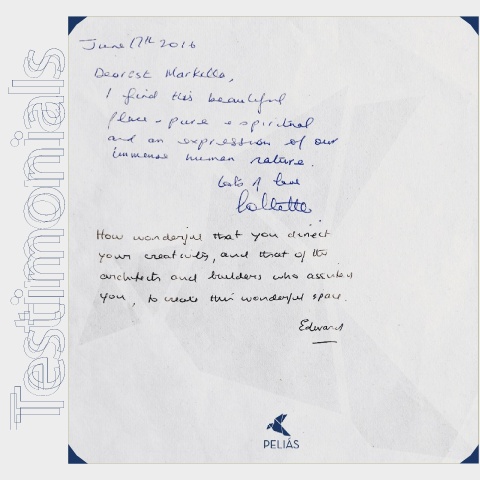 Testimonials
June 17th 2016
Dearest Markella,
I find this beautiful
place - pure & spiritual
and an expression of our
immense human nature.
lots of love
How wonderful that you direct
your creativity, and that of the
architects and builders who assisted
you, to create this wonderful space.
Edward
PELIÁS